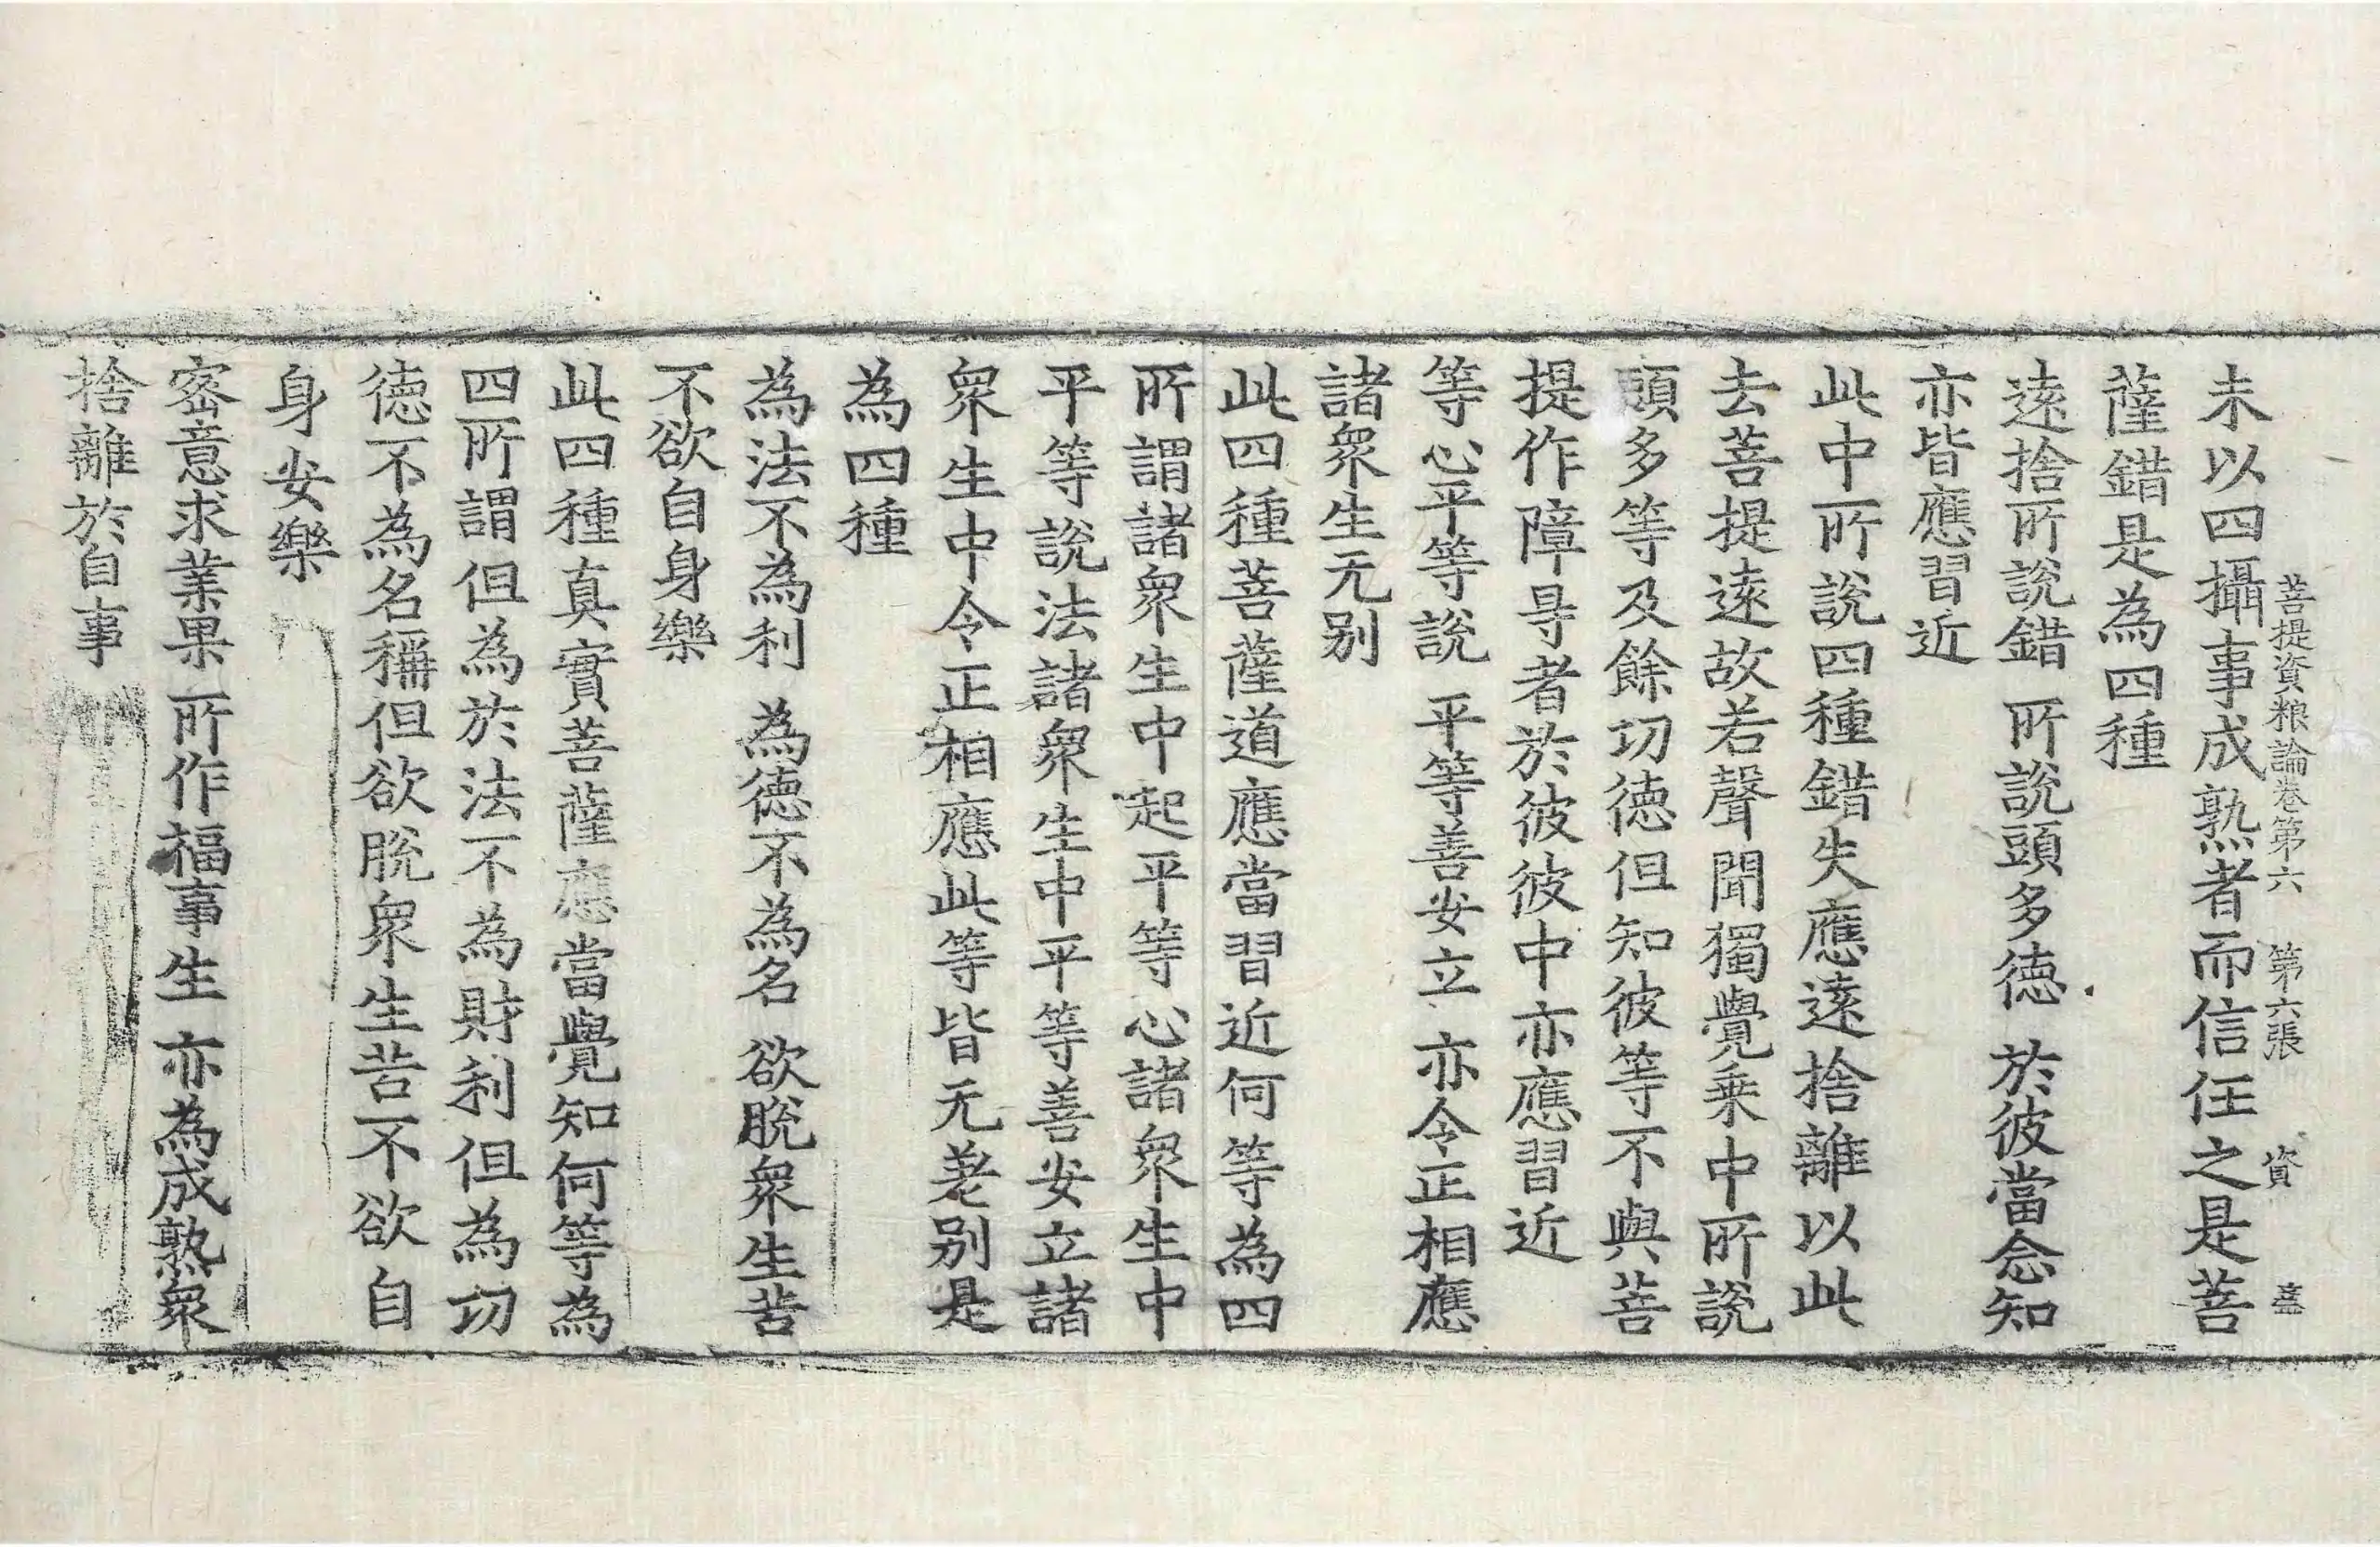 菩提資粮論卷第六 第六張 資
未以四攝事成熟者而信任之是菩
薩錯是為四種
遠捨所說錯 所說頭多德 於彼當念知
亦皆應習近
此中所說四種錯失應遠捨離以此
去菩提遠故若聲聞獨覺乘中所說
頭多等及餘功德但知彼等不與菩
提作障㝵者於彼彼中亦應習近
等心平等說 平等善安立 亦令正相應
諸衆生无別
此四種菩薩道應當習近何等為四
所謂諸衆生中起平等心諸衆生中
平等說法諸衆生中平等善安立諸
衆生中令正相應此等皆无差別是
為四種
為法不為利 為德不為名 欲脫衆生苦
不欲自身樂
此四種真實菩薩應當覺知何等為
四所謂但為於法不為財利但為功
德不為名稱但欲脫衆生苦不欲自
身安樂
密意求業果 所作福事生 亦為成熟衆
捨離於自事